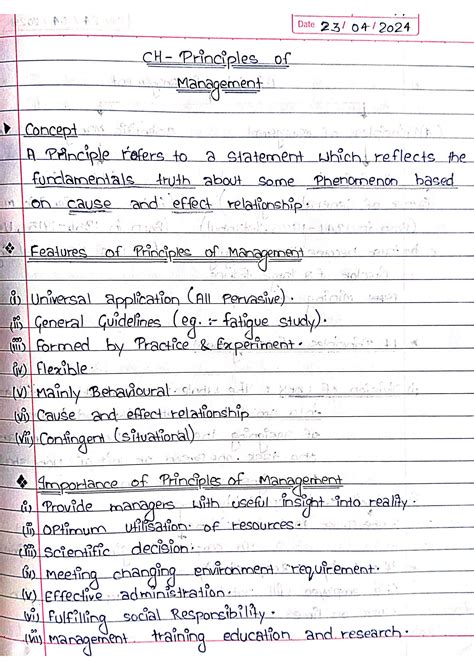 Date 23/04/2024
CH- Principles of
Management
Concept
A Principle refers to a statement which reflects the
fundamentals truth about some Phenomenon based
on cause and effect relationship.
Features of Principles of Management
(i) Universal application (All Pervasive).
(ii) General Guidelines (eg. :- fatigue study).
(iii) Formed by Practice & Experiment.
(iv) Flexible.
(v) Mainly Behavioural.
(vi) Cause and effect relationship
(vii) Contingent (Situational)
Importance of Principles of Management
(i) Provide managers with useful insight into reality.
(ii) Optimum utilisation of resources.
(iii) Scientific decision.
(iv) Meeting changing environment requirement.
(v) Effective administration.
(vi) Fulfilling social Responsibility.
(vii) Management training education and research.